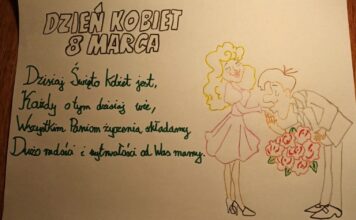 DZIEŃ KOBIET
8 MARCA
Dzisiaj Święto Kobiet jest,
Każdy o tym dzisiaj wie,
Wszystkim Paniom życzenia składamy,
Dużo radości i wytrwałości od Was mamy.